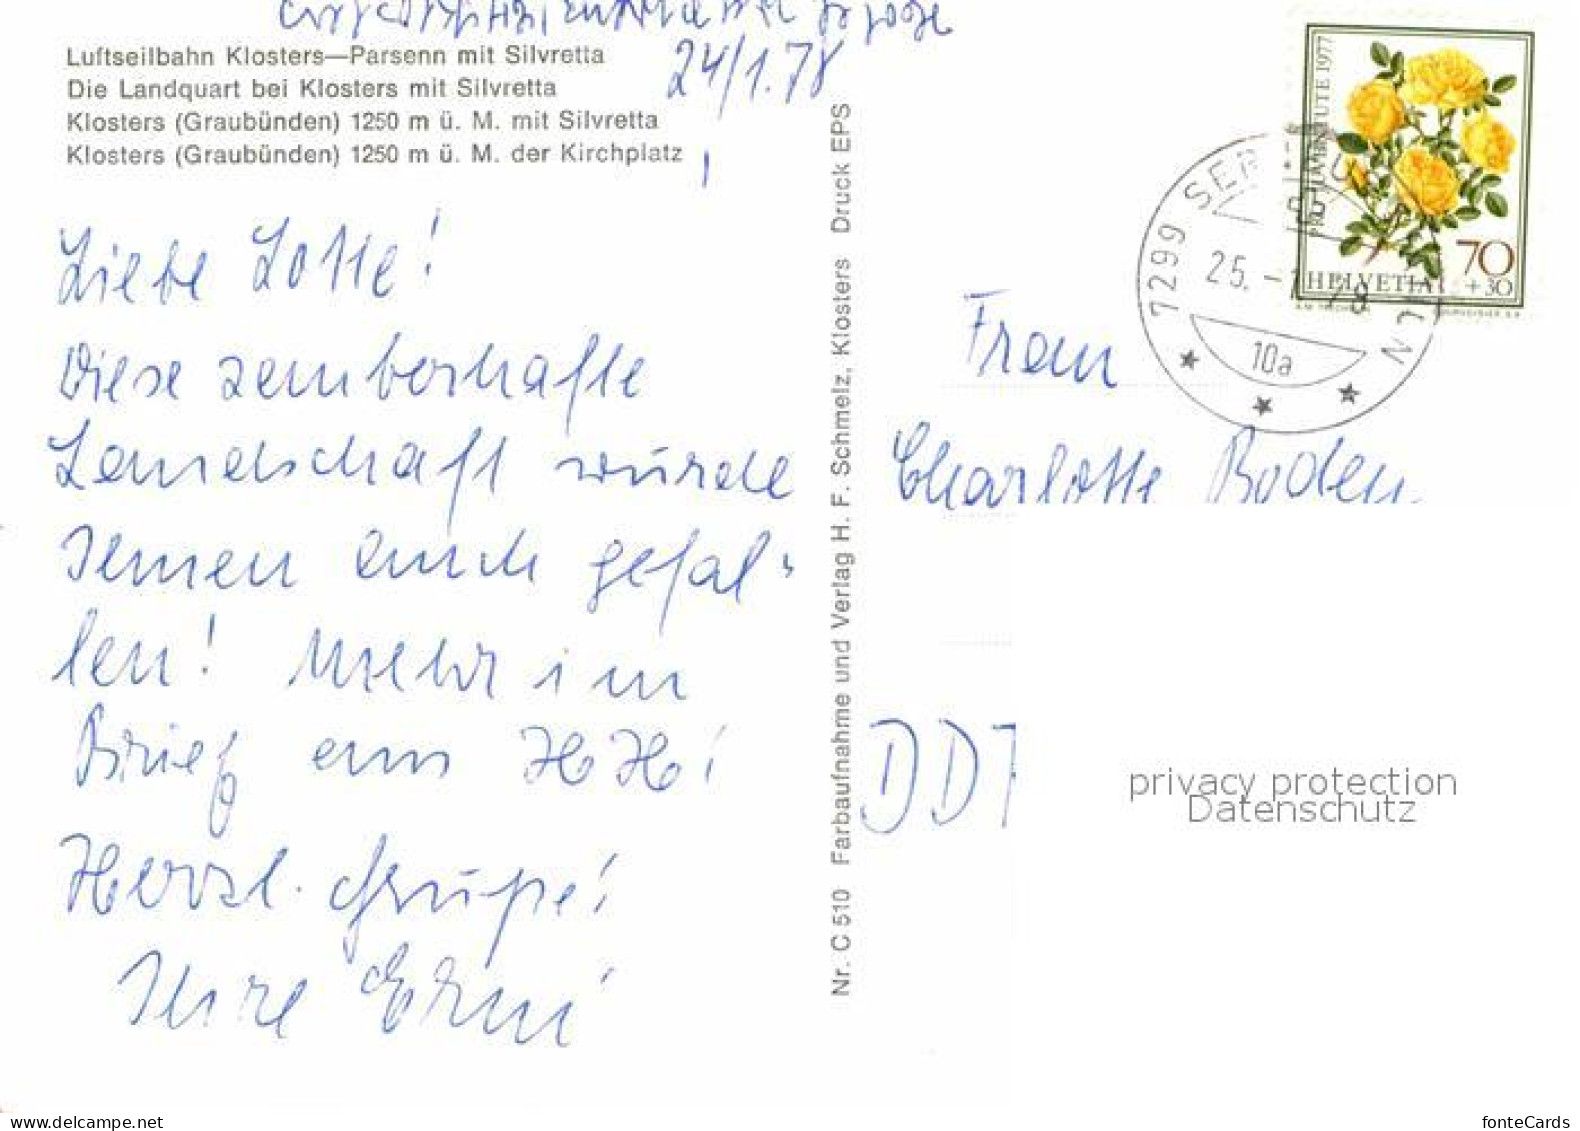 24/1.78
Luftseilbahn Klosters—Parsenn mit Silvretta
Die Landquart bei Klosters mit Silvretta
Klosters (Graubünden) 1250 m ü. M. mit Silvretta
Klosters (Graubünden) 1250 m ü. M. der Kirchplatz
Liebe Lotte!
Diese zauberhafte
Landschaft würde
Ihnen auch gefal-
len! Mehr im
Brief aus
Herzl. Grüße!
Ihre Erni
Nr. C 510 Farbaufnahme und Verlag H. F. Schmelz, Klosters Druck EPS
PRO JUVENTUTE 1977
70
+30
HELVETIA
7299
25. -1. 78
10a
Frau
Charlotte Boden
DDR
privacy protection
Datenschutz
www.delcampe.net
fonteCards